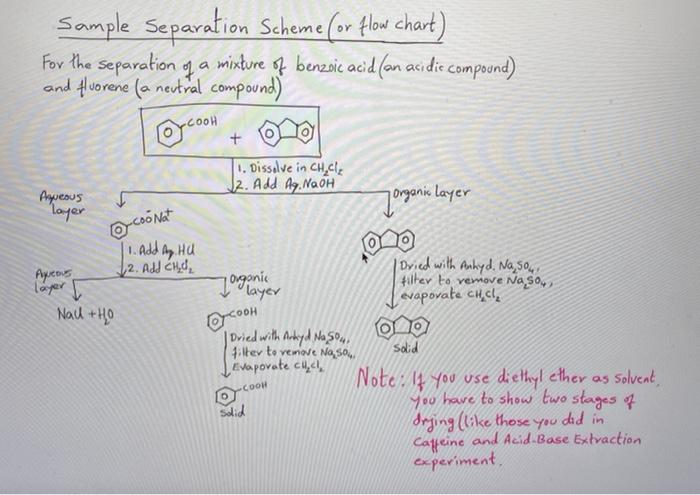 Sample Separation Scheme (or flow chart)
For the separation of a mixture of benzoic acid (an acidic compound)
and fluorene (a neutral compound)
COOH
+
1. Dissolve in CH₂Cl₂
2. Add Aq. NaOH
Aqueous
layer
organic layer
COŌNa⁺
1. Add Aq. HCl
2. Add CH₂Cl₂
Aqueous
layer
NaCl + H₂O
organic
layer
COOH
Dried with Anhyd Na₂SO₄,
filter to remove Na₂SO₄,
Evaporate CH₂Cl₂
COOH
solid
Dried with Anhyd. Na₂SO₄,
filter to remove Na₂SO₄,
evaporate CH₂Cl₂
solid
Note: If you use diethyl ether as solvent,
you have to show two stages of
drying (like those you did in
Caffeine and Acid-Base Extraction
experiment.